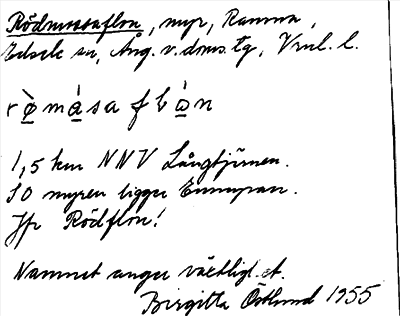 Rödmossaflon, myr, Ramsna,
Edsele sn, Ång. v. doms. tg, Vnl. l.
rò̱má̱sa flò̱n
1,5 km NNV Långtjärnen.
SO myren ligger
Jfr Rödflon!
Namnet anger växtligh.et.
Birgitta Östlund 1955